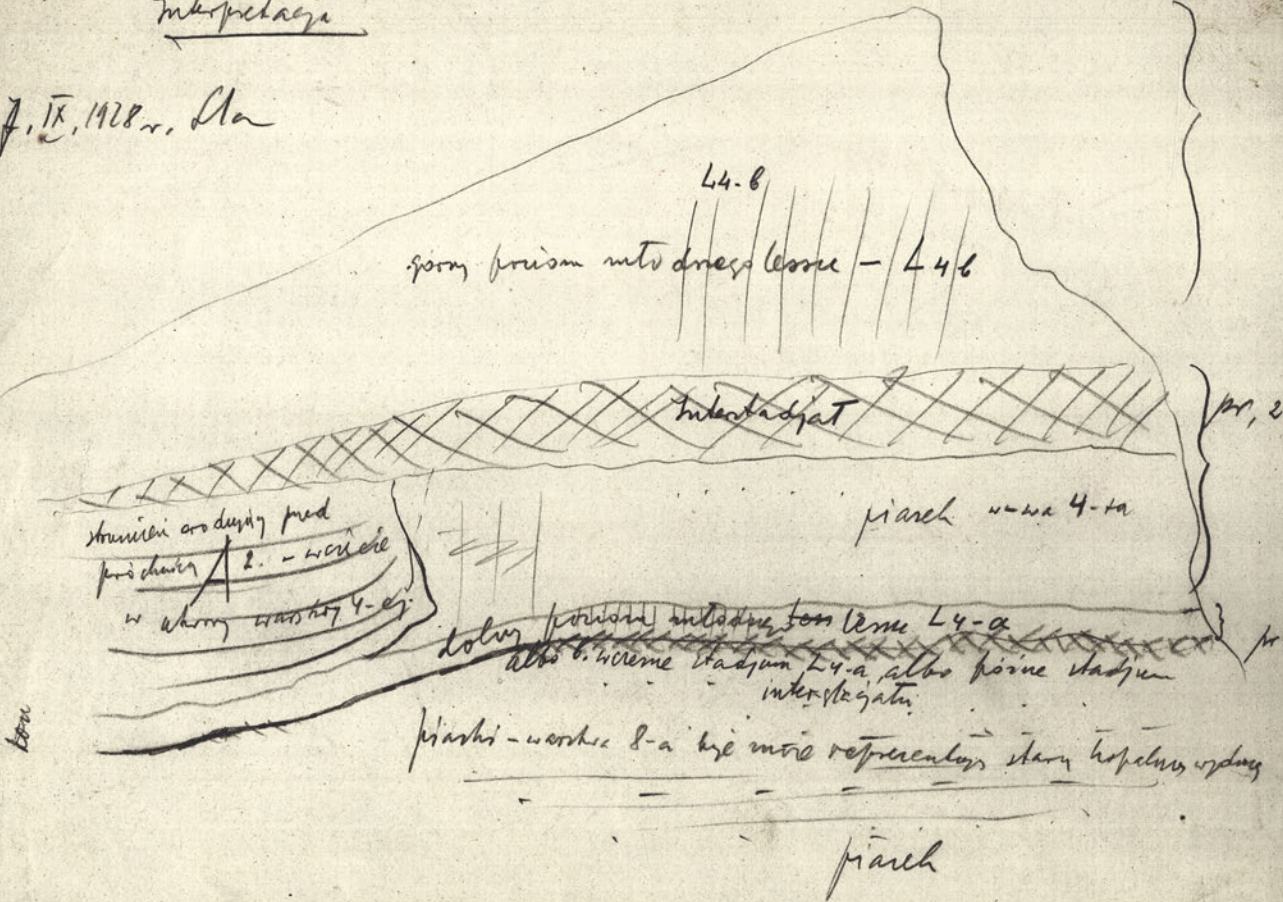 Interpretacja
7. IX. 1928 r.
L4-b
górny poziom młodszego lessu – L4b
Interstadjał
pr, 2
piasek w-wa 4-ta
strumień erodujący pred
próchnicą 2. – wcięcie
w utwory warstwy 4-ej.
dolny poziom młodszego less lessu L4-a
albo b. wczesne stadjum L4-a, albo późne stadjum
interglacjału
piaski – warstwa 8-a być może reprezentują starą kopalną wydmę
piasek